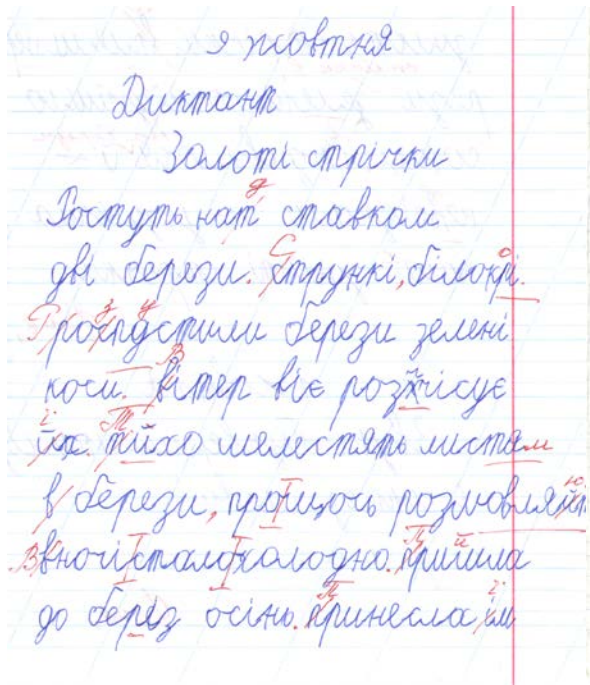 9 жовтня
Диктант
Золоті стрічки
Ростуть нат ставком
дві берези. стрункі, білокрі.
роспустили берези зелені
коси. вітер віє розчісує
їх. тихо шелестять листям
в берези, прощось розмовляют
вночі стало холодно. пришла
до берез осінь. принесла їм